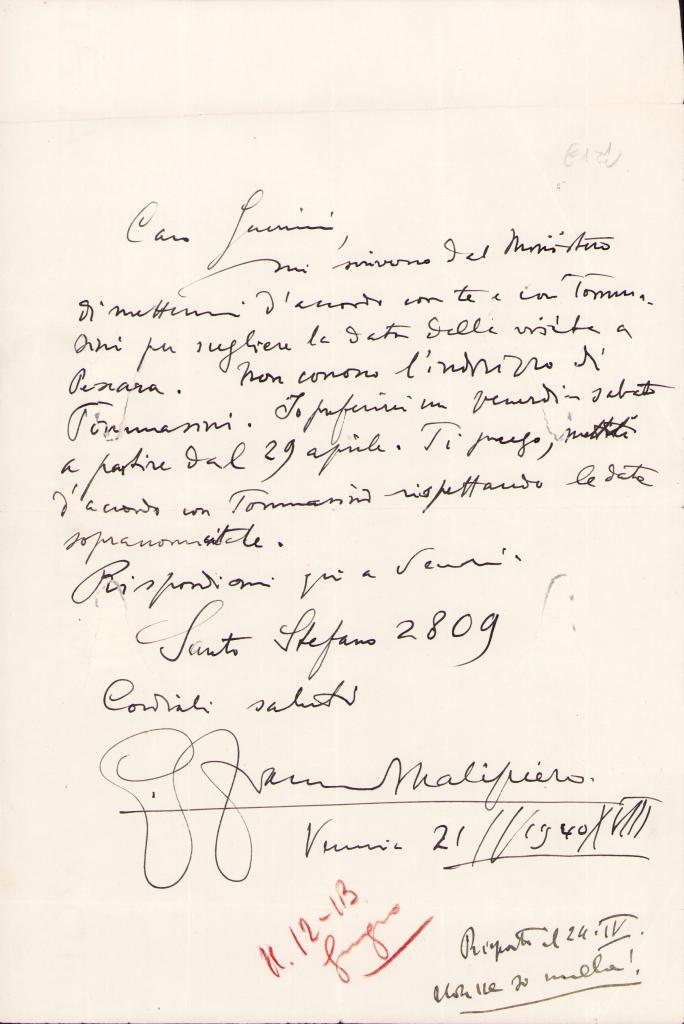 Caro Guerrini,
mi scrivono dal Ministero
di mettermi d'accordo con te e con Tomma-
sini per scegliere la data della visita a
Pescara. Non conosco l'indirizzo di
Tommasini. Io preferirei un venerdi o sabato
a partire dal 29 aprile. Ti prego, mettiti
d'accordo con Tommasini rispettando le date
sopranominate.
Rispondimi qui a Venezia.
Santo Stefano 2809
Cordiali saluti
G. Francesco Malipiero.
Venezia 21/ /1940 XVIII
11. 12-13
giugno
Risposto il 24. IV.
Non ne so nulla!